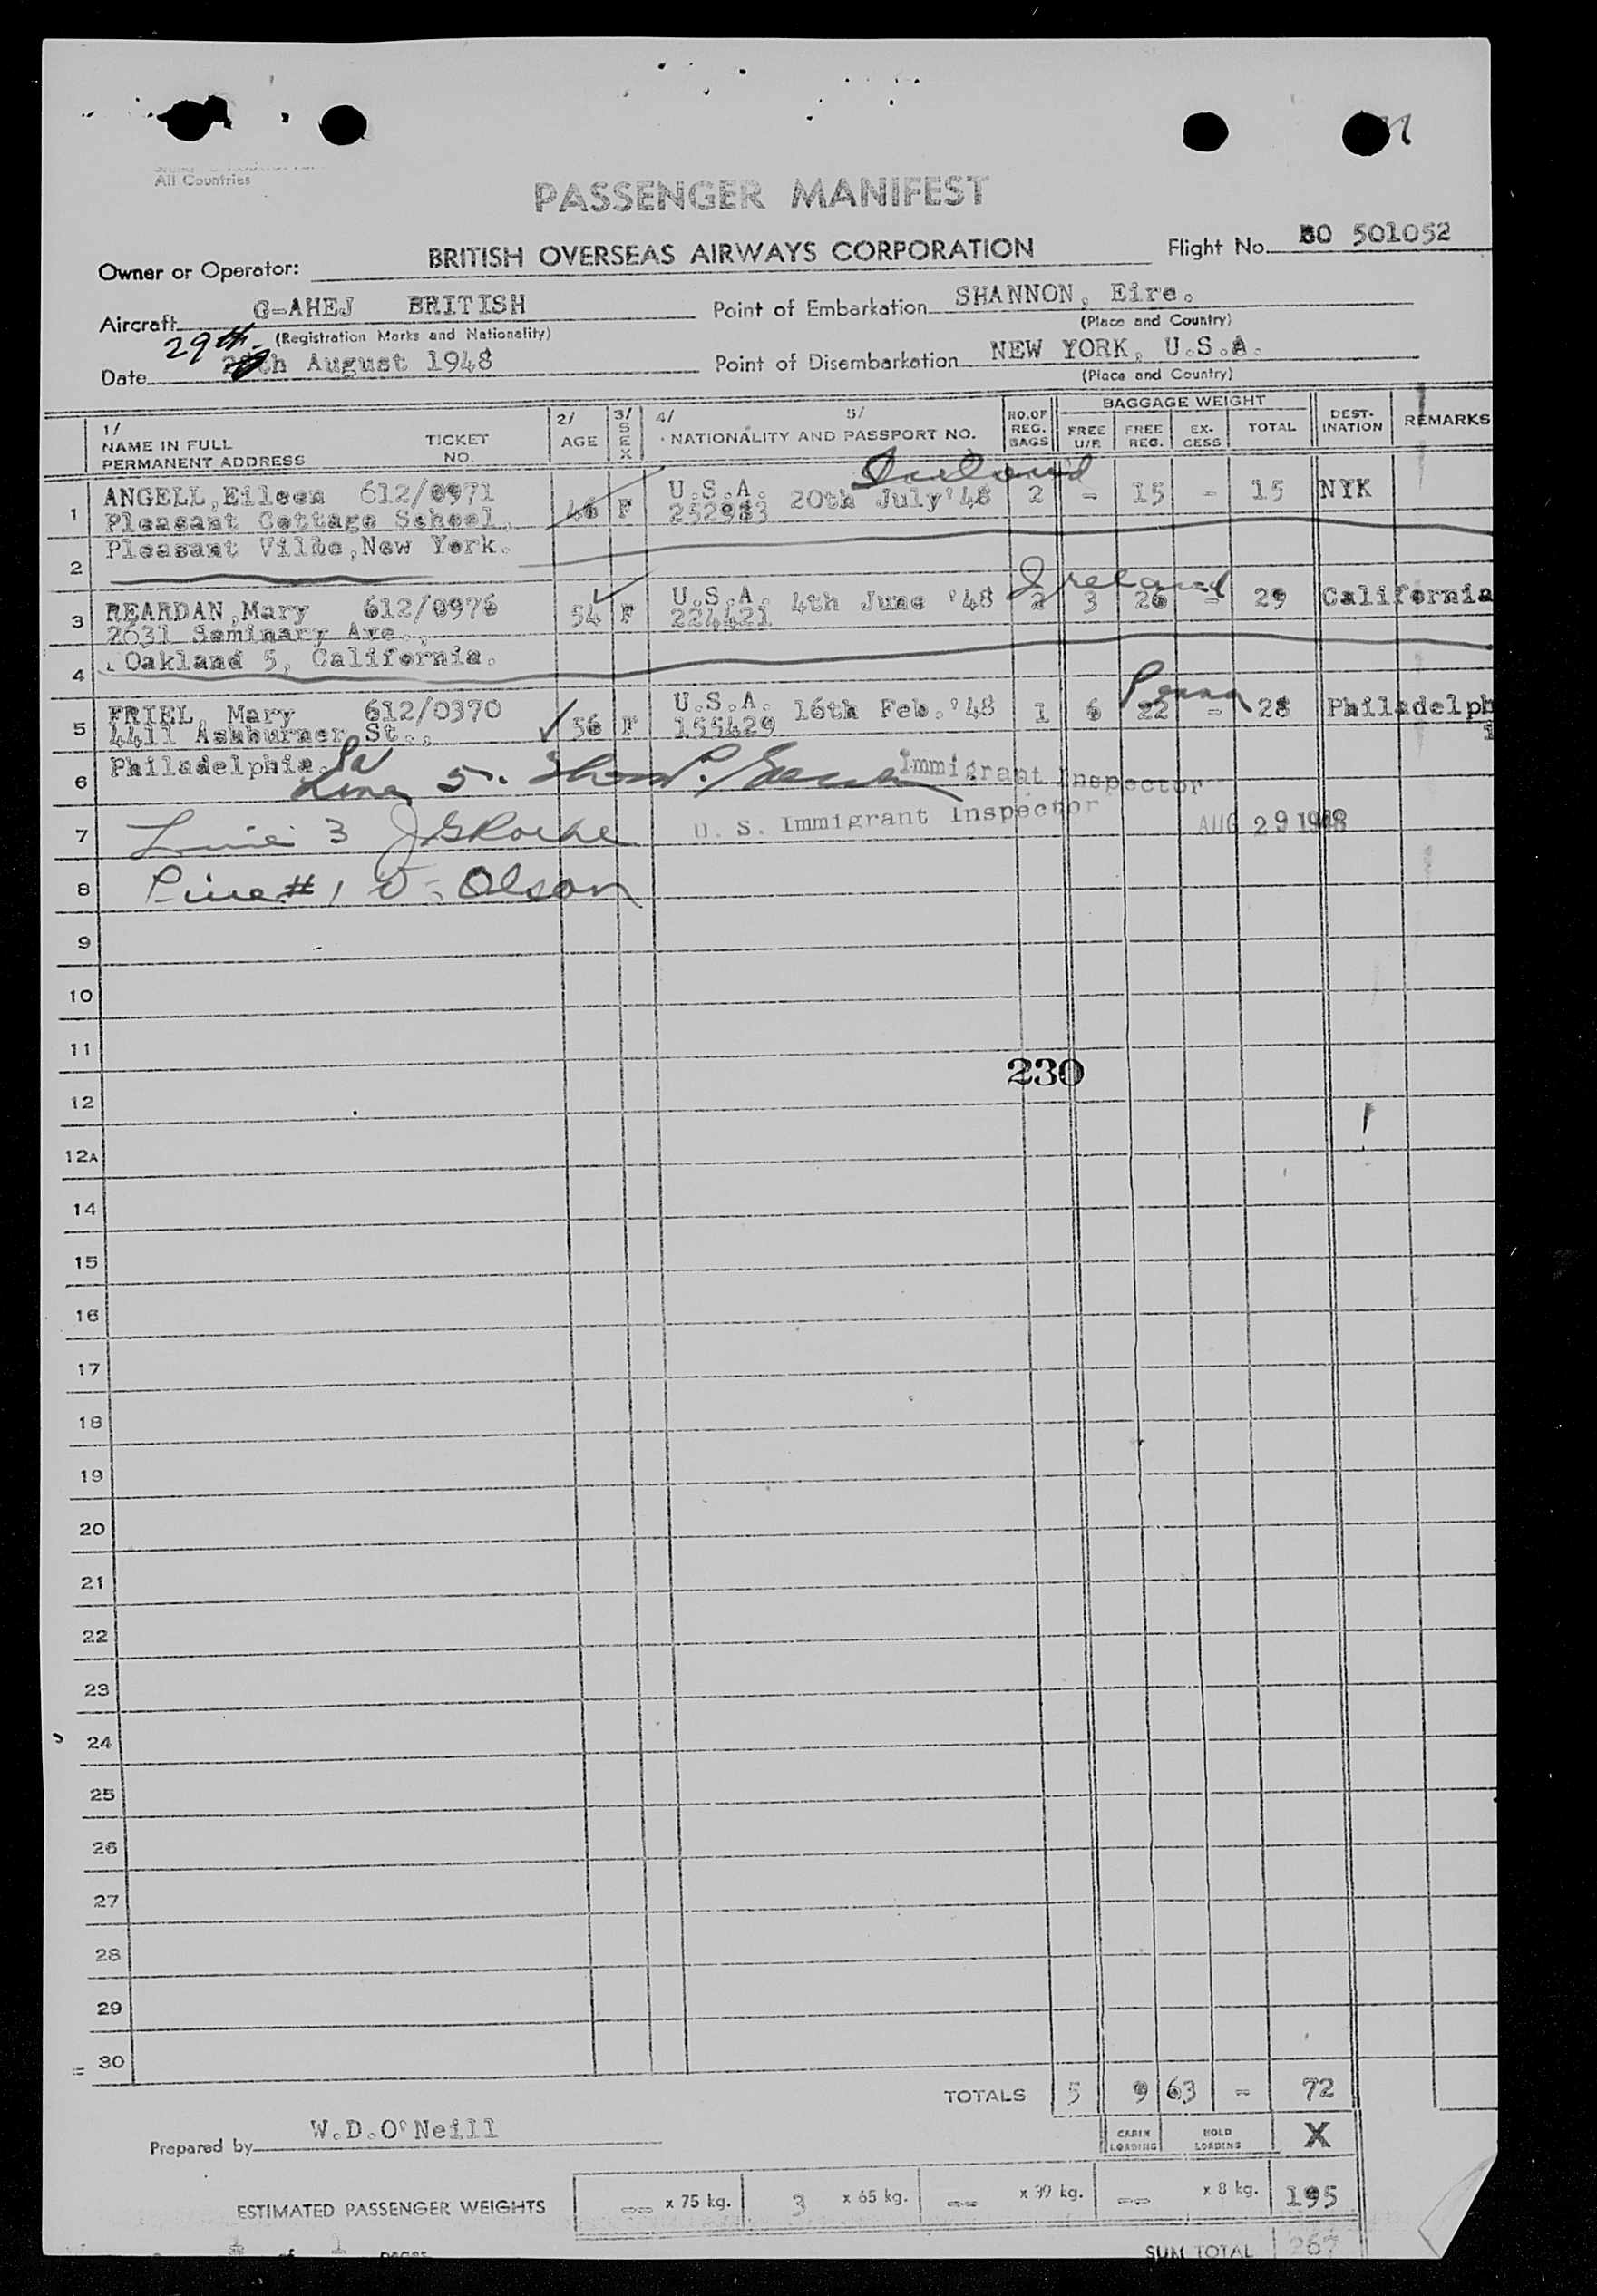 All Countries
PASSENGER MANIFEST
Owner or Operator: BRITISH OVERSEAS AIRWAYS CORPORATION Flight No. BO 501052
Aircraft G-AHEJ BRITISH Point of Embarkation SHANNON, Eire.
(Registration Marks and Nationality) (Place and Country)
29th
Date th August 1948 Point of Disembarkation NEW YORK, U.S.A.
(Place and Country)
1/ NAME IN FULL PERMANENT ADDRESS TICKET NO. 2/ AGE 3/ SEX 4/ 5/ NATIONALITY AND PASSPORT NO. NO. OF REG. BAGS BAGGAGE WEIGHT FREE U/R FREE REG. EX-CESS TOTAL DEST-INATION REMARKS
Ireland
1 ANGELL, Eileen 612/0971 46 F U.S.A. 20th July '48 2 - 15 - 15 NYK
Pleasant Cottage School, 252983
2 Pleasant Ville, New York.
Ireland
3 REARDAN, Mary 612/0976 54 F U.S.A. 4th June '48 2 3 26 - 29 California
2631 Seminary Ave., 224421
4 Oakland 5, California.
Penna
5 FRIEL, Mary 612/0370 56 F U.S.A. 16th Feb. '48 1 6 22 - 28 Philadelph
4411 Ashburner St., 155429 i
6 Philadelphia. Pa
Line 5. Immigrant Inspector
7 Line 3 J G Roche U. S. Immigrant Inspector AUG 29 1948
8 Line # 1 O. Olson
9
10
11
230
12
12A
14
15
16
17
18
19
20
21
22
23
24
25
26
27
28
29
30
TOTALS 5 9 63 - 72
Prepared by W.D.O'Neill CABIN LOADING HOLD LOADING X
ESTIMATED PASSENGER WEIGHTS -- x 75 kg. 3 x 65 kg. -- x 39 kg. -- x 8 kg. 195
1 of 1 pages SUM TOTAL 267